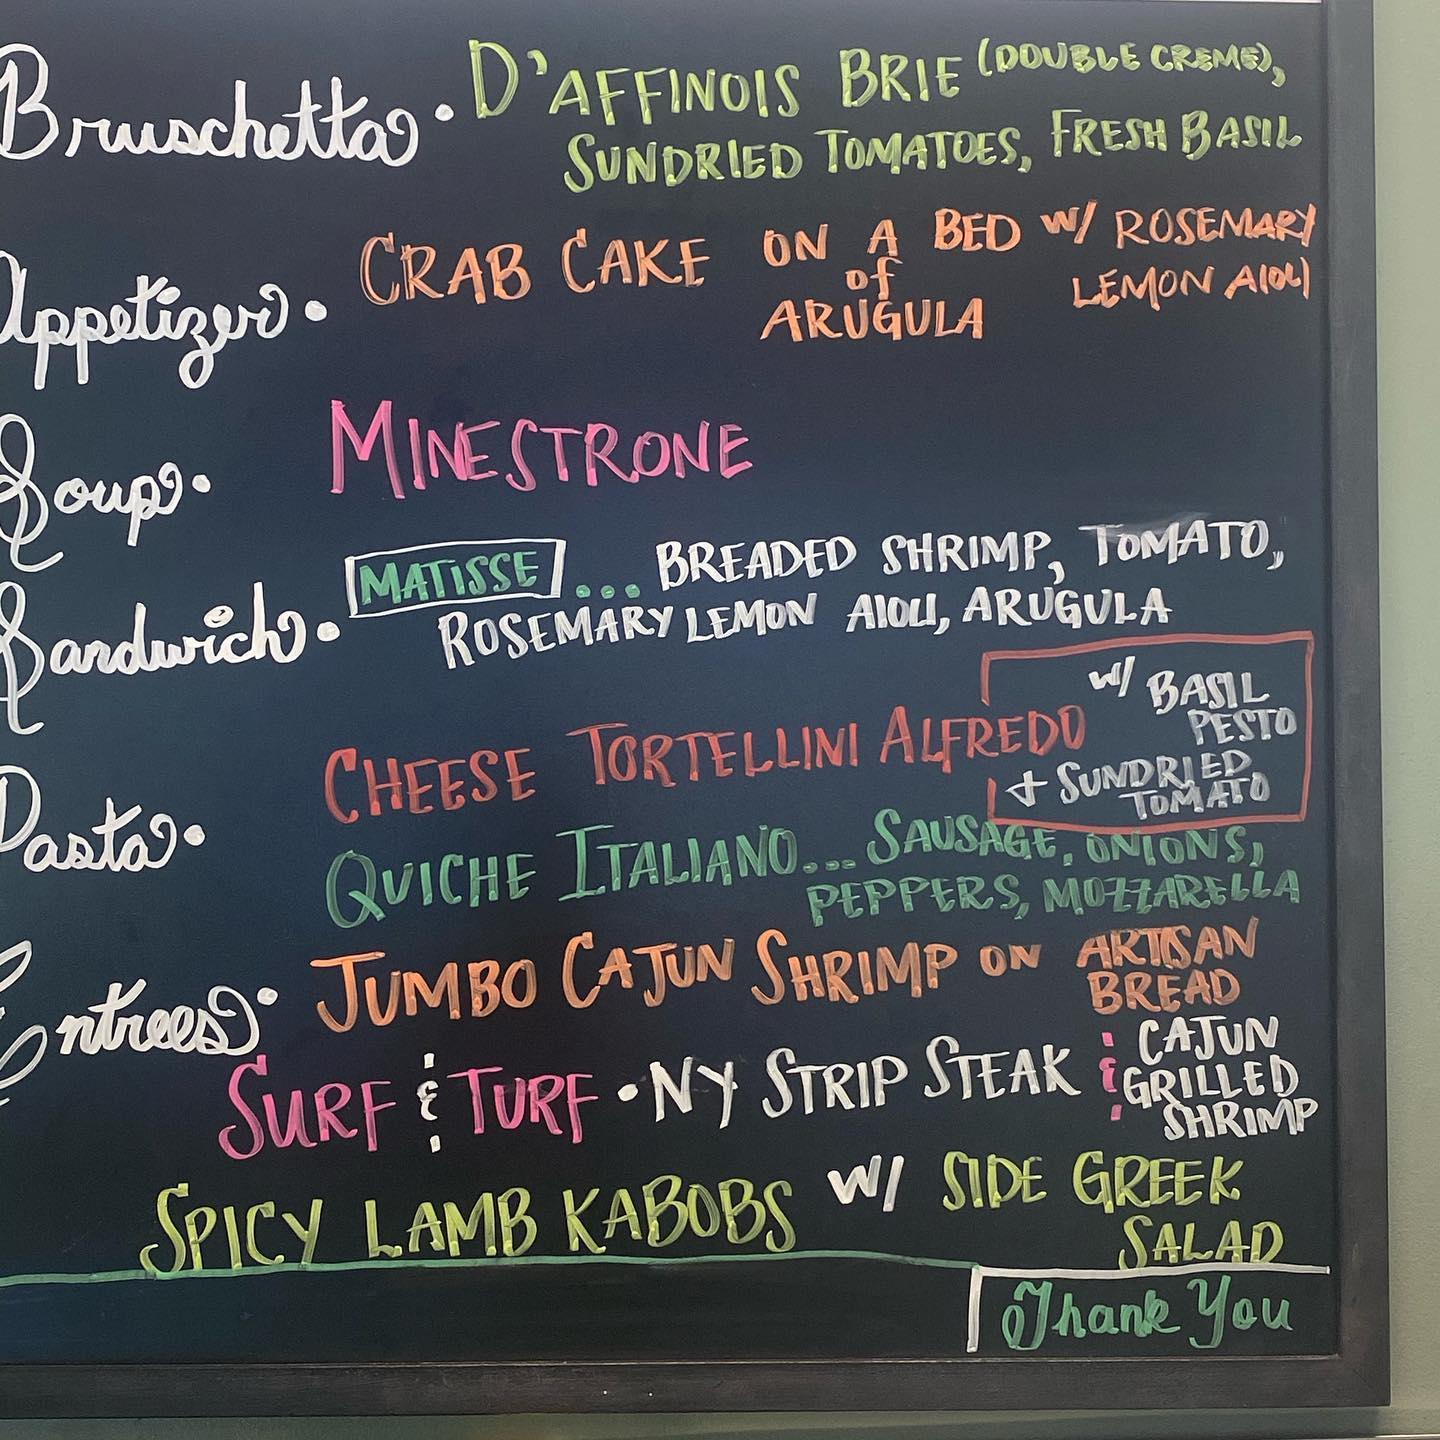 Bruschetta • D'AFFINOIS BRIE (DOUBLE CREME),
SUNDRIED TOMATOES, FRESH BASIL
Appetizer • CRAB CAKE ON A BED of ARUGULA w/ ROSEMARY
LEMON AIOLI
Soup • MINESTRONE
Sandwich • MATISSE ... BREADED SHRIMP, TOMATO,
ROSEMARY LEMON AIOLI, ARUGULA
Pasta • CHEESE TORTELLINI ALFREDO
w/ BASIL
PESTO
+ SUNDRIED
TOMATO
QUICHE ITALIANO... SAUSAGE, ONIONS,
PEPPERS, MOZZARELLA
Entrees • JUMBO CAJUN SHRIMP ON ARTISAN
BREAD
SURF & TURF • NY STRIP STEAK & CAJUN
GRILLED
SHRIMP
SPICY LAMB KABOBS w/ SIDE GREEK
SALAD
Thank You